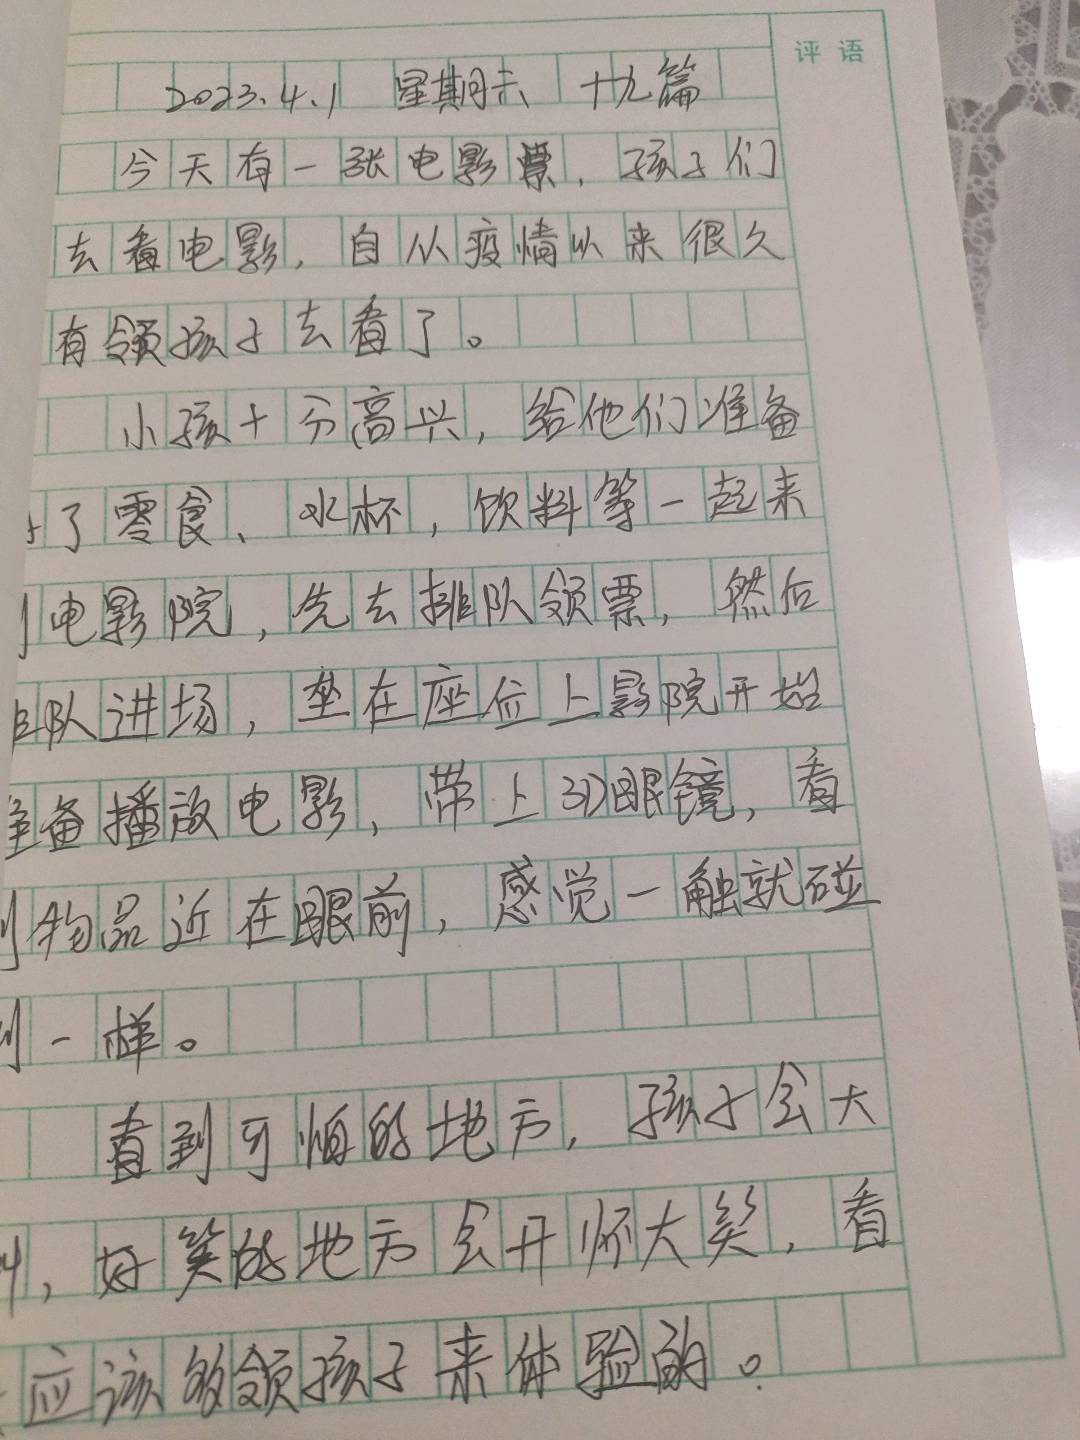 评语
2023.4.1 星期六 十九篇
今天有一张电影票，孩子们
去看电影，自从疫情以来很久
有领孩子去看了。
小孩十分高兴，给他们准备
了零食、水杯，饮料等一起来
电影院，先去排队领票，然后
队进场，坐在座位上影院开始
准备播放电影，带上3D眼镜，看
到物品近在眼前，感觉一触就碰
到一样。
看到可怕的地方，孩子会大
叫，好笑的地方会开怀大笑，看
应该多领孩子来体验的。